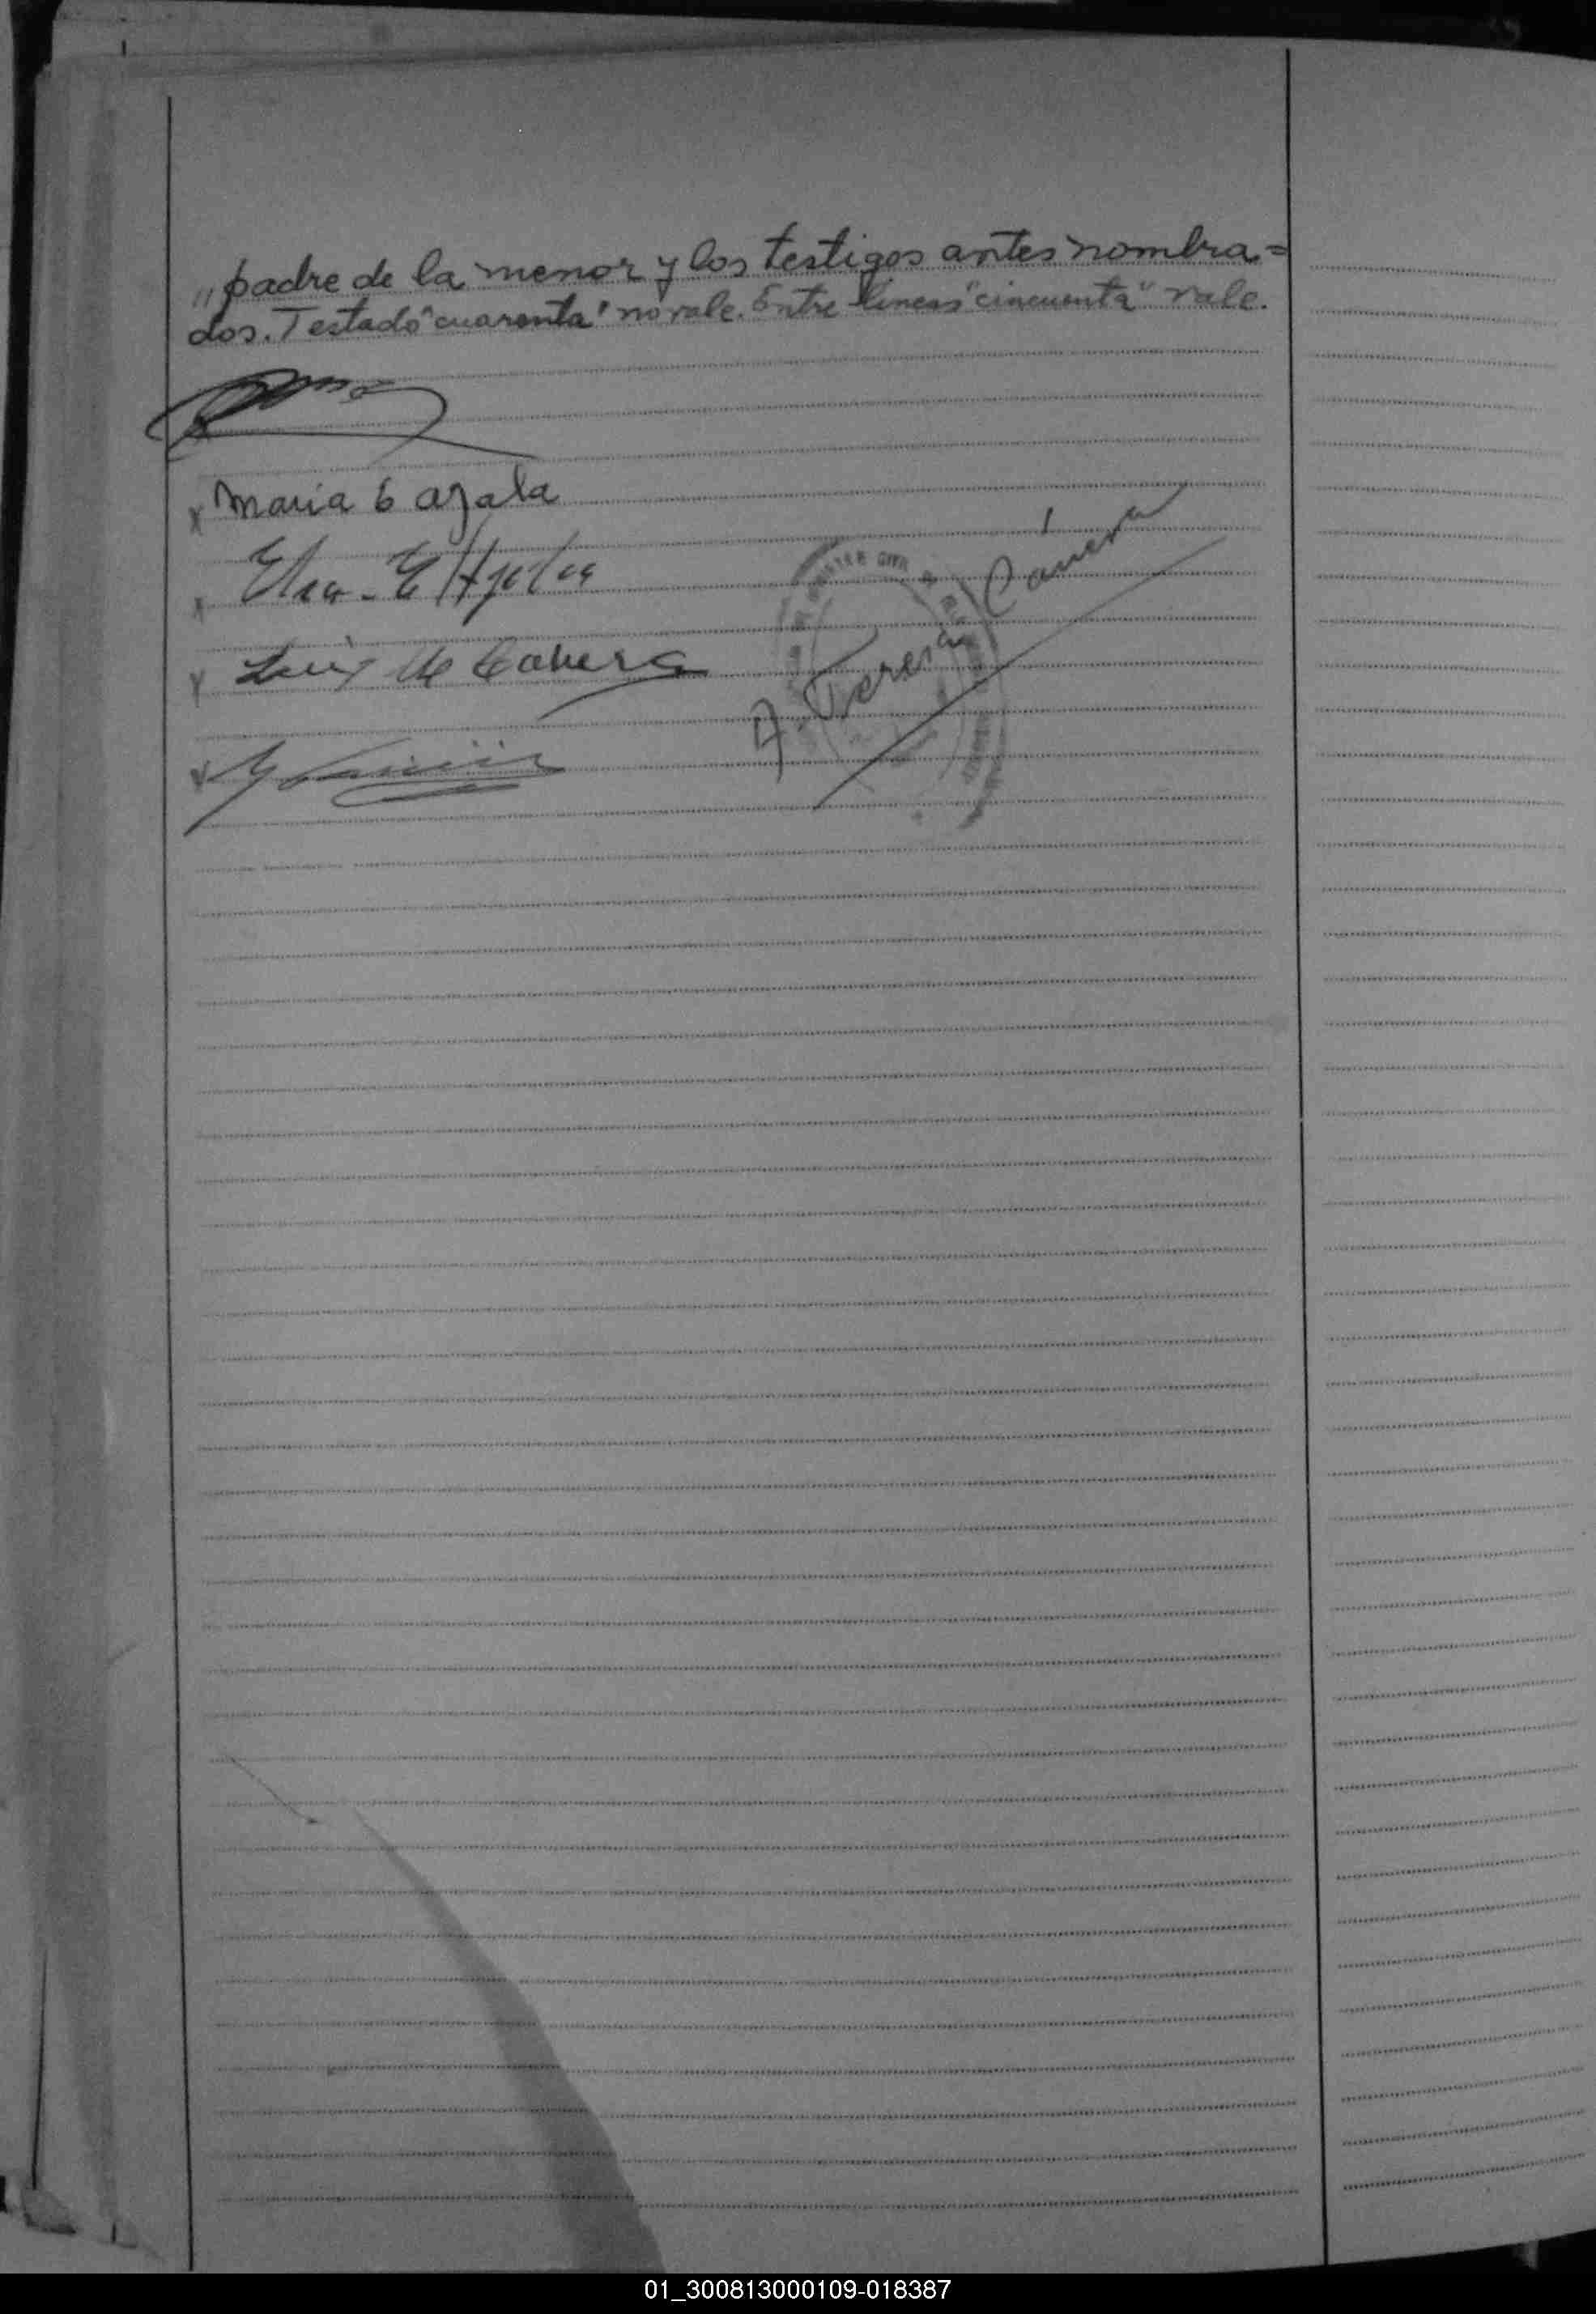 „padre de la menor y los testigos antes nombra=
dos. Testado "cuarenta" no vale. Entre líneas "cincuenta" vale.
x Maria E Ayala
x
x Luis M Cabrera
A. Teresa Cámera
01_300813000109-018387